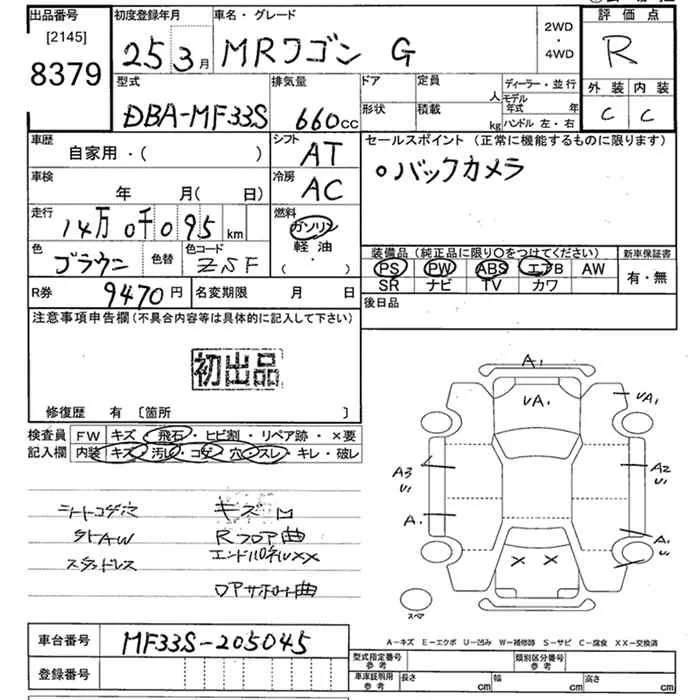 出品番号
[2145]
8379
初度登録年月
25 3月
車名・グレード
MRワゴン G
2WD
・
4WD
評価点
R
型式
DBA-MF33S
排気量
660cc
ドア
形状
定員
人
積載
kg
ディーラー・並行
モデル年式 年
ハンドル 左・右
外装 内装
C C
車歴
自家用・( )
シフト
AT
セールスポイント (正常に機能するものに限ります)
○バックカメラ
車検
年 月( 日)
冷房
AC
走行
14万0千095km
燃料
ガソリン
軽油
・
( )
色
ブラウン
色替
色コード
ZSF
装備品 (純正品に限り○をつけてください)
PS PW ABS エアB AW
SR ナビ TV カワ
新車保証書
有・無
R券
9470円
名変期限 月 日
後日品
注意事項申告欄 (不具合内容等は具体的に記入して下さい)
初出品
修復歴 有 〔箇所 〕
検査員
記入欄
FW キズ・飛石・ヒビ割・リペア跡・×要
内装 キズ・汚レ・コゲ・穴・スレ・キレ・破レ
シートコゲ穴
キズ
Rフロア曲
スタッドレス
エンドパネルXX
ロアサポート曲
A1
UA1
UA1
A3
U1
A2
U1
A1
A1
U1
X X
スペア
A-キズ E-エクボ U-凹み W-補修跡 S-サビ C-腐食 XX-交換済
車台番号
MF33S-205045
登録番号
型式指定番号
参考
類別区分番号
参考
車庫証明用
参考
長さ cm
幅 cm
高さ cm